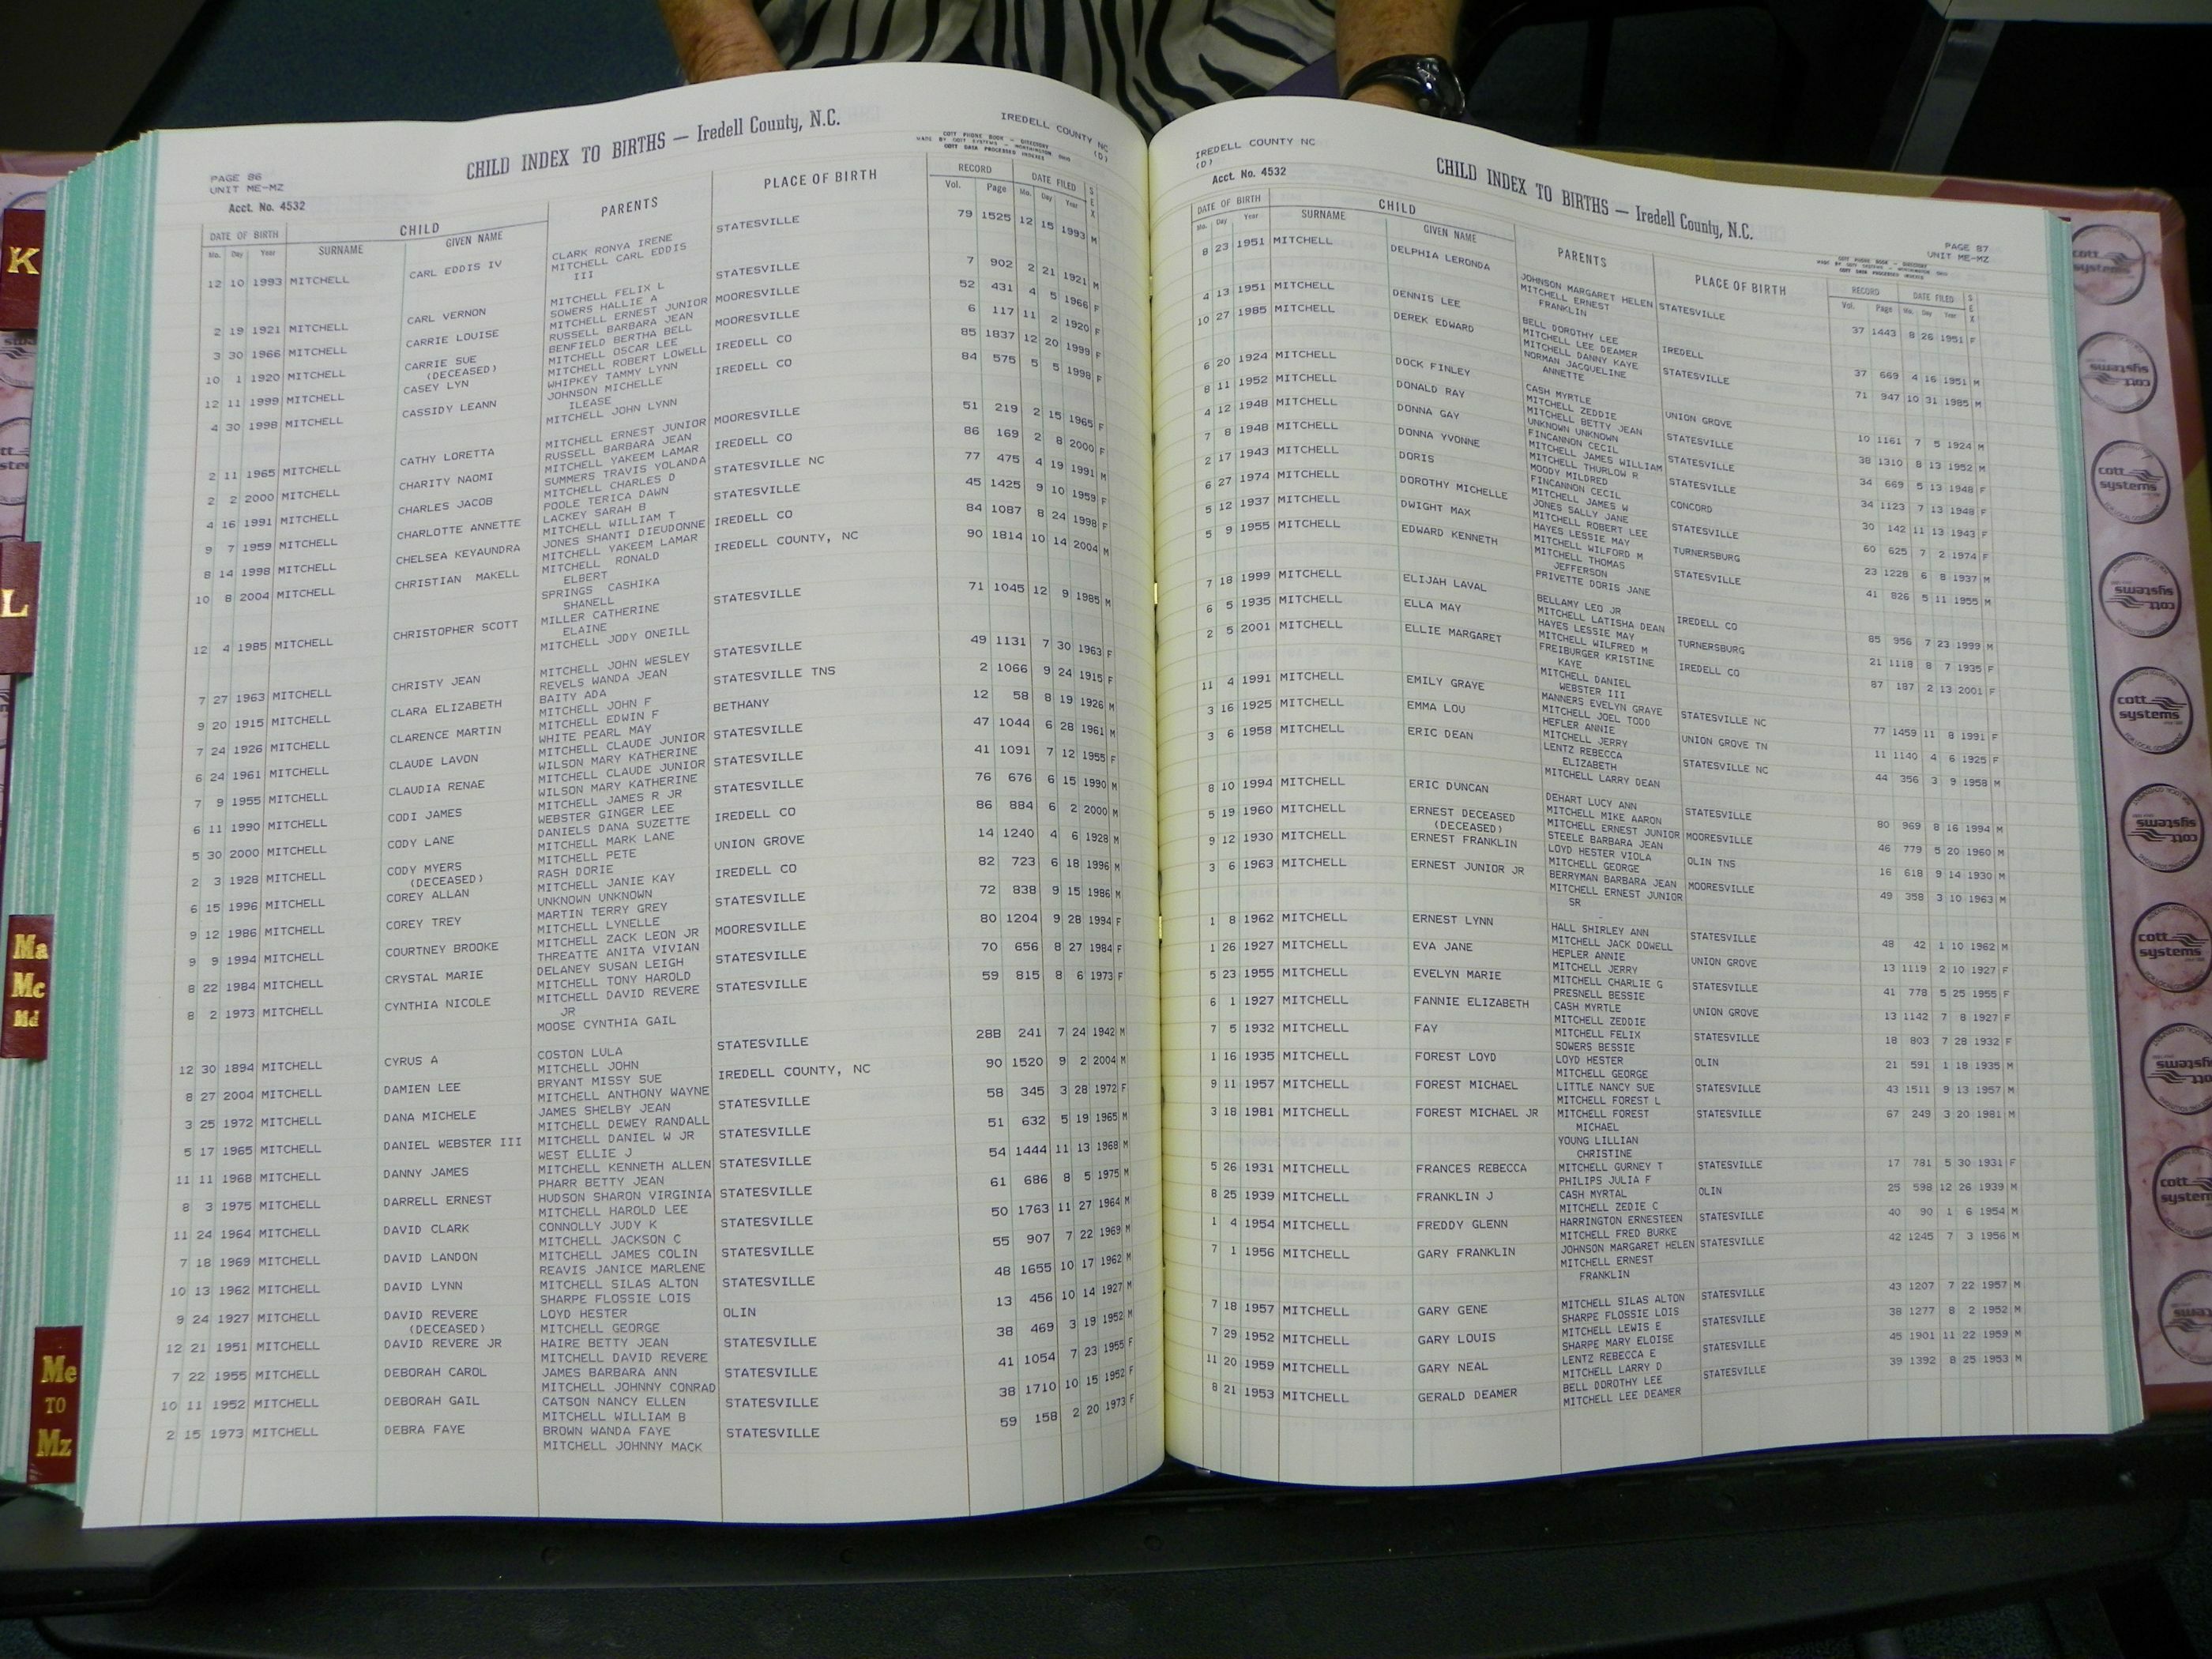 PAGE 86
UNIT ME-MZ
Acct. No. 4532
CHILD INDEX TO BIRTHS — Iredell County, N.C.
IREDELL COUNTY NC
(D)
COTT PHONE BOOK - DIRECTORY
MADE BY COTT SYSTEMS - WORTHINGTON, OHIO
COTT DATA PROCESSED INDEXES
DATE OF BIRTH CHILD PARENTS PLACE OF BIRTH RECORD DATE FILED SEX
Mo. Day Year SURNAME GIVEN NAME Vol. Page Mo. Day Year
12 10 1993 MITCHELL CARL EDDIS IV CLARK RONYA IRENE STATESVILLE 79 1525 12 15 1993 M
MITCHELL CARL EDDIS
III
2 19 1921 MITCHELL CARL VERNON MITCHELL FELIX L STATESVILLE 7 902 2 21 1921 M
SOWERS HALLIE A
3 30 1966 MITCHELL CARRIE LOUISE MITCHELL ERNEST JUNIOR MOORESVILLE 52 431 4 5 1966 F
RUSSELL BARBARA JEAN
10 1 1920 MITCHELL CARRIE SUE BENFIELD BERTHA BELL MOORESVILLE 6 117 11 2 1920 F
(DECEASED) MITCHELL OSCAR LEE
12 11 1999 MITCHELL CASEY LYN MITCHELL ROBERT LOWELL IREDELL CO 85 1837 12 20 1999 F
WHIPKEY TAMMY LYNN
4 30 1998 MITCHELL CASSIDY LEANN JOHNSON MICHELLE IREDELL CO 84 575 5 5 1998 F
ILEASE
MITCHELL JOHN LYNN
2 11 1965 MITCHELL CATHY LORETTA MITCHELL ERNEST JUNIOR MOORESVILLE 51 219 2 15 1965 F
RUSSELL BARBARA JEAN
2 2 2000 MITCHELL CHARITY NAOMI MITCHELL YAKEEM LAMAR IREDELL CO 86 169 2 8 2000 F
SUMMERS TRAVIS YOLANDA
4 16 1991 MITCHELL CHARLES JACOB MITCHELL CHARLES D STATESVILLE NC 77 475 4 19 1991 M
POOLE TERICA DAWN
9 7 1959 MITCHELL CHARLOTTE ANNETTE LACKEY SARAH B STATESVILLE 45 1425 9 10 1959 F
MITCHELL WILLIAM T
8 14 1998 MITCHELL CHELSEA KEYAUNDRA JONES SHANTI DIEUDONNE IREDELL CO 84 1087 8 24 1998 F
MITCHELL YAKEEM LAMAR
10 8 2004 MITCHELL CHRISTIAN MAKELL MITCHELL RONALD IREDELL COUNTY, NC 90 1814 10 14 2004 M
ELBERT
SPRINGS CASHIKA
SHANELL
12 4 1985 MITCHELL CHRISTOPHER SCOTT MILLER CATHERINE STATESVILLE 71 1045 12 9 1985 M
ELAINE
MITCHELL JODY ONEILL
7 27 1963 MITCHELL CHRISTY JEAN MITCHELL JOHN WESLEY STATESVILLE 49 1131 7 30 1963 F
REVELS WANDA JEAN
9 20 1915 MITCHELL CLARA ELIZABETH BAITY ADA STATESVILLE TNS 2 1066 9 24 1915 F
MITCHELL JOHN F
7 24 1926 MITCHELL CLARENCE MARTIN MITCHELL EDWIN F BETHANY 12 58 8 19 1926 M
WHITE PEARL MAY
6 24 1961 MITCHELL CLAUDE LAVON MITCHELL CLAUDE JUNIOR STATESVILLE 47 1044 6 28 1961 M
WILSON MARY KATHERINE
7 9 1955 MITCHELL CLAUDIA RENAE MITCHELL CLAUDE JUNIOR STATESVILLE 41 1091 7 12 1955 F
WILSON MARY KATHERINE
6 11 1990 MITCHELL CODI JAMES MITCHELL JAMES R JR STATESVILLE 76 676 6 15 1990 M
WEBSTER GINGER LEE
5 30 2000 MITCHELL CODY LANE DANIELS DANA SUZETTE IREDELL CO 86 884 6 2 2000 M
MITCHELL MARK LANE
2 3 1928 MITCHELL CODY MYERS MITCHELL PETE UNION GROVE 14 1240 4 6 1928 M
(DECEASED) RASH DORIE
6 15 1996 MITCHELL COREY ALLAN MITCHELL JANIE KAY IREDELL CO 82 723 6 18 1996 M
UNKNOWN UNKNOWN
9 12 1986 MITCHELL COREY TREY MARTIN TERRY GREY STATESVILLE 72 838 9 15 1986 M
MITCHELL LYNELLE
9 9 1994 MITCHELL COURTNEY BROOKE MITCHELL ZACK LEON JR MOORESVILLE 80 1204 9 28 1994 F
THREATTE ANITA VIVIAN
8 22 1984 MITCHELL CRYSTAL MARIE DELANEY SUSAN LEIGH STATESVILLE 70 656 8 27 1984 F
MITCHELL TONY HAROLD
8 2 1973 MITCHELL CYNTHIA NICOLE MITCHELL DAVID REVERE STATESVILLE 59 815 8 6 1973 F
JR
MOOSE CYNTHIA GAIL
12 30 1894 MITCHELL CYRUS A COSTON LULA STATESVILLE 28B 241 7 24 1942 M
MITCHELL JOHN
8 27 2004 MITCHELL DAMIEN LEE BRYANT MISSY SUE IREDELL COUNTY, NC 90 1520 9 2 2004 M
MITCHELL ANTHONY WAYNE
3 25 1972 MITCHELL DANA MICHELE JAMES SHELBY JEAN STATESVILLE 58 345 3 28 1972 F
MITCHELL DEWEY RANDALL
5 17 1965 MITCHELL DANIEL WEBSTER III MITCHELL DANIEL W JR STATESVILLE 51 632 5 19 1965 M
WEST ELLIE J
11 11 1968 MITCHELL DANNY JAMES MITCHELL KENNETH ALLEN STATESVILLE 54 1444 11 13 1968 M
PHARR BETTY JEAN
8 3 1975 MITCHELL DARRELL ERNEST HUDSON SHARON VIRGINIA STATESVILLE 61 686 8 5 1975 M
MITCHELL HAROLD LEE
11 24 1964 MITCHELL DAVID CLARK CONNOLLY JUDY K STATESVILLE 50 1763 11 27 1964 M
MITCHELL JACKSON C
7 18 1969 MITCHELL DAVID LANDON MITCHELL JAMES COLIN STATESVILLE 55 907 7 22 1969 M
REAVIS JANICE MARLENE
10 13 1962 MITCHELL DAVID LYNN MITCHELL SILAS ALTON STATESVILLE 48 1655 10 17 1962 M
SHARPE FLOSSIE LOIS
9 24 1927 MITCHELL DAVID REVERE LOYD HESTER OLIN 13 456 10 14 1927 M
(DECEASED) MITCHELL GEORGE
12 21 1951 MITCHELL DAVID REVERE JR HAIRE BETTY JEAN STATESVILLE 38 469 3 19 1952 M
MITCHELL DAVID REVERE
7 22 1955 MITCHELL DEBORAH CAROL JAMES BARBARA ANN STATESVILLE 41 1054 7 23 1955 F
MITCHELL JOHNNY CONRAD
10 11 1952 MITCHELL DEBORAH GAIL CATSON NANCY ELLEN STATESVILLE 38 1710 10 15 1952 F
MITCHELL WILLIAM B
2 15 1973 MITCHELL DEBRA FAYE BROWN WANDA FAYE STATESVILLE 59 158 2 20 1973 F
MITCHELL JOHNNY MACK
IREDELL COUNTY NC
(D)
Acct. No. 4532
CHILD INDEX TO BIRTHS — Iredell County, N.C.
PAGE 87
UNIT ME-MZ
COTT PHONE BOOK - DIRECTORY
MADE BY COTT SYSTEMS - WORTHINGTON, OHIO
COTT DATA PROCESSED INDEXES
DATE OF BIRTH CHILD PARENTS PLACE OF BIRTH RECORD DATE FILED SEX
Mo. Day Year SURNAME GIVEN NAME Vol. Page Mo. Day Year
8 23 1951 MITCHELL DELPHIA LERONDA JOHNSON MARGARET HELEN STATESVILLE 37 1443 8 26 1951 F
MITCHELL ERNEST
FRANKLIN
4 13 1951 MITCHELL DENNIS LEE BELL DOROTHY LEE IREDELL 37 669 4 16 1951 M
MITCHELL LEE DEAMER
10 27 1985 MITCHELL DEREK EDWARD MITCHELL DANNY KAYE STATESVILLE 71 947 10 31 1985 M
NORMAN JACQUELINE
ANNETTE
6 20 1924 MITCHELL DOCK FINLEY CASH MYRTLE UNION GROVE 10 1161 7 5 1924 M
MITCHELL ZEDDIE
8 11 1952 MITCHELL DONALD RAY MITCHELL BETTY JEAN STATESVILLE 38 1310 8 13 1952 M
UNKNOWN UNKNOWN
4 12 1948 MITCHELL DONNA GAY FINCANNON CECIL STATESVILLE 34 669 5 13 1948 F
MITCHELL JAMES WILLIAM
7 8 1948 MITCHELL DONNA YVONNE MITCHELL THURLOW R STATESVILLE 34 1123 7 13 1948 F
MOODY MILDRED
2 17 1943 MITCHELL DORIS FINCANNON CECIL CONCORD 30 142 11 13 1943 F
MITCHELL JAMES W
6 27 1974 MITCHELL DOROTHY MICHELLE JONES SALLY JANE STATESVILLE 60 625 7 2 1974 F
MITCHELL ROBERT LEE
5 12 1937 MITCHELL DWIGHT MAX HAYES LESSIE MAY TURNERSBURG 23 1228 6 8 1937 M
MITCHELL WILFORD M
5 9 1955 MITCHELL EDWARD KENNETH MITCHELL THOMAS STATESVILLE 41 826 5 11 1955 M
JEFFERSON
PRIVETTE DORIS JANE
7 18 1999 MITCHELL ELIJAH LAVAL BELLAMY LEO JR IREDELL CO 85 956 7 23 1999 M
MITCHELL LATISHA DEAN
6 5 1935 MITCHELL ELLA MAY HAYES LESSIE MAY TURNERSBURG 21 1118 8 7 1935 F
MITCHELL WILFRED M
2 5 2001 MITCHELL ELLIE MARGARET FREIBURGER KRISTINE IREDELL CO 87 187 2 13 2001 F
KAYE
MITCHELL DANIEL
WEBSTER III
11 4 1991 MITCHELL EMILY GRAYE MANNERS EVELYN GRAYE STATESVILLE NC 77 1459 11 8 1991 F
MITCHELL JOEL TODD
3 16 1925 MITCHELL EMMA LOU HEFLER ANNIE UNION GROVE TN 11 1140 4 6 1925 F
MITCHELL JERRY
3 6 1958 MITCHELL ERIC DEAN LENTZ REBECCA STATESVILLE NC 44 356 3 9 1958 M
ELIZABETH
MITCHELL LARRY DEAN
8 10 1994 MITCHELL ERIC DUNCAN DEHART LUCY ANN STATESVILLE 80 969 8 16 1994 M
MITCHELL MIKE AARON
5 19 1960 MITCHELL ERNEST DECEASED MITCHELL ERNEST JUNIOR MOORESVILLE 46 779 5 20 1960 M
(DECEASED) STEELE BARBARA JEAN
9 12 1930 MITCHELL ERNEST FRANKLIN LOYD HESTER VIOLA OLIN TNS 16 618 9 14 1930 M
MITCHELL GEORGE
3 6 1963 MITCHELL ERNEST JUNIOR JR BERRYMAN BARBARA JEAN MOORESVILLE 49 358 3 10 1963 M
MITCHELL ERNEST JUNIOR
SR
1 8 1962 MITCHELL ERNEST LYNN HALL SHIRLEY ANN STATESVILLE 48 42 1 10 1962 M
MITCHELL JACK DOWELL
1 26 1927 MITCHELL EVA JANE HEPLER ANNIE UNION GROVE 13 1119 2 10 1927 F
MITCHELL JERRY
5 23 1955 MITCHELL EVELYN MARIE MITCHELL CHARLIE G STATESVILLE 41 778 5 25 1955 F
PRESNELL BESSIE
6 1 1927 MITCHELL FANNIE ELIZABETH CASH MYRTLE UNION GROVE 13 1142 7 8 1927 F
MITCHELL ZEDDIE
7 5 1932 MITCHELL FAY MITCHELL FELIX STATESVILLE 18 803 7 28 1932 F
SOWERS BESSIE
1 16 1935 MITCHELL FOREST LOYD LOYD HESTER OLIN 21 591 1 18 1935 M
MITCHELL GEORGE
9 11 1957 MITCHELL FOREST MICHAEL LITTLE NANCY SUE STATESVILLE 43 1511 9 13 1957 M
MITCHELL FOREST L
3 18 1981 MITCHELL FOREST MICHAEL JR MITCHELL FOREST STATESVILLE 67 249 3 20 1981 M
MICHAEL
YOUNG LILLIAN
CHRISTINE
5 26 1931 MITCHELL FRANCES REBECCA MITCHELL GURNEY T STATESVILLE 17 781 5 30 1931 F
PHILIPS JULIA F
8 25 1939 MITCHELL FRANKLIN J CASH MYRTAL OLIN 25 598 12 26 1939 M
MITCHELL ZEDIE C
1 4 1954 MITCHELL FREDDY GLENN HARRINGTON ERNESTEEN STATESVILLE 40 90 1 6 1954 M
MITCHELL FRED BURKE
7 1 1956 MITCHELL GARY FRANKLIN JOHNSON MARGARET HELEN STATESVILLE 42 1245 7 3 1956 M
MITCHELL ERNEST
FRANKLIN
7 18 1957 MITCHELL GARY GENE MITCHELL SILAS ALTON STATESVILLE 43 1207 7 22 1957 M
SHARPE FLOSSIE LOIS
7 29 1952 MITCHELL GARY LOUIS MITCHELL LEWIS E STATESVILLE 38 1277 8 2 1952 M
SHARPE MARY ELOISE
11 20 1959 MITCHELL GARY NEAL LENTZ REBECCA E STATESVILLE 45 1901 11 22 1959 M
MITCHELL LARRY D
8 21 1953 MITCHELL GERALD DEAMER BELL DOROTHY LEE STATESVILLE 39 1392 8 25 1953 M
MITCHELL LEE DEAMER
K
L
Ma
Mc
Md
Me
TO
Mz
cott
systems
cott
systems
cott
systems
cott
systems
cott
systems